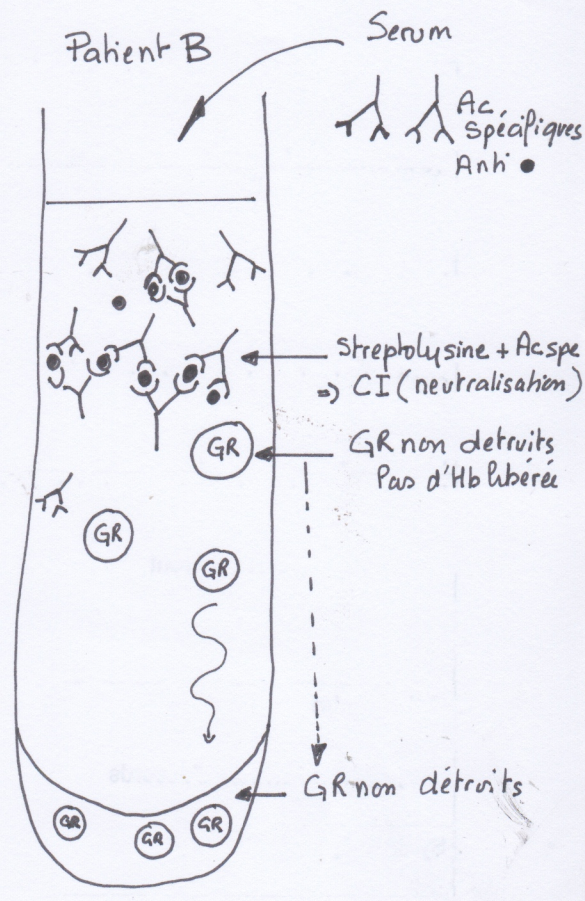 Patient B
Serum
Ac
Spécifiques
Anti
Streptolysine + Ac spe
=) CI (neutralisation)
GR
GR non detruits
Pas d'Hb libérée
GR
GR
GR non détroits
GR
GR
GR